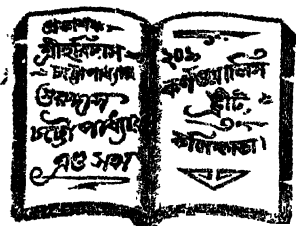 প্রকাশক—
শ্রীহরিদাস
চট্টোপাধ্যায়
গুরুদাস
চট্টোপাধ্যায়
এণ্ড সন্স
২০১
কর্ণওয়ালিস
ষ্ট্রীট
কলিকাতা।